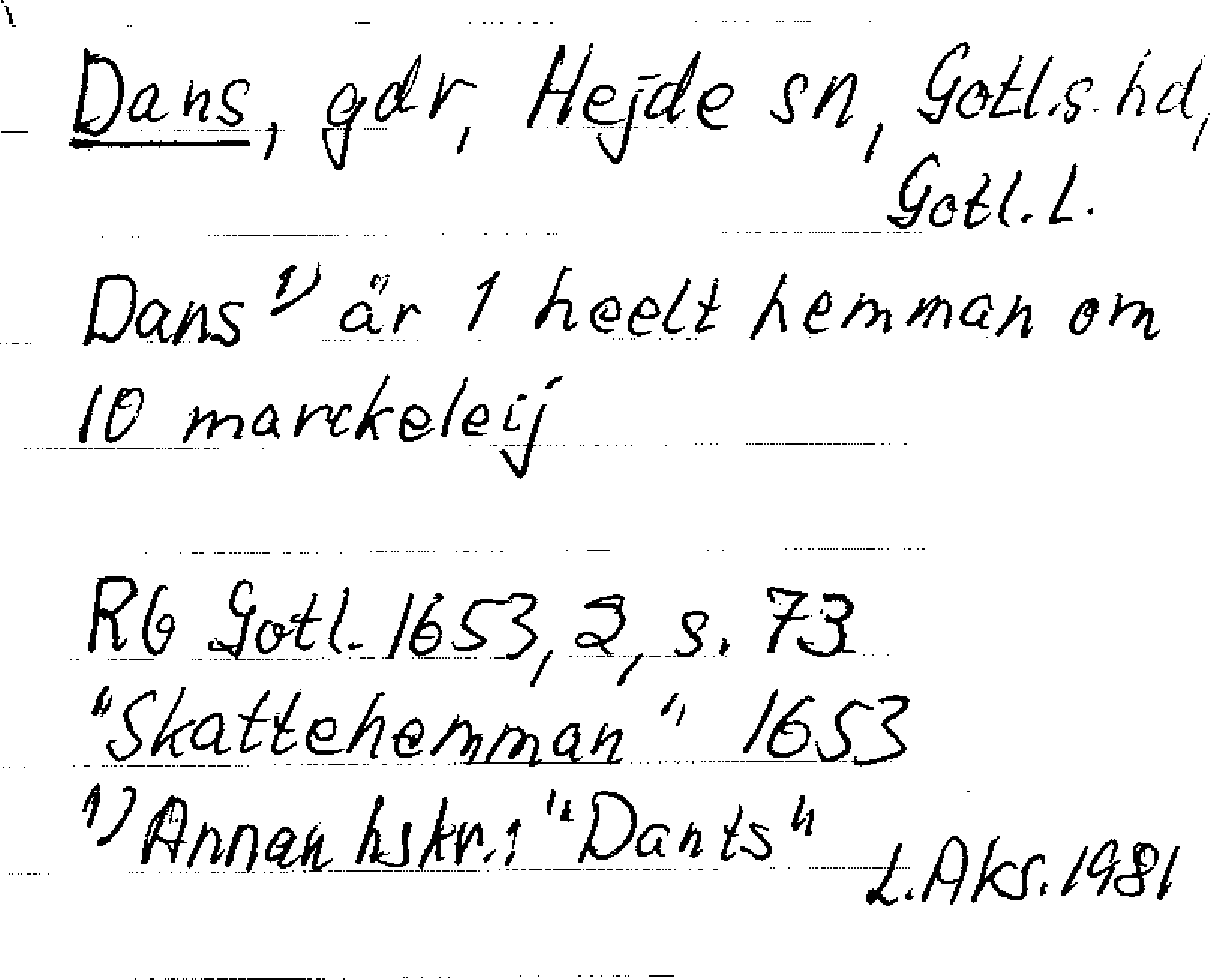 Dans, gdr, Hejde sn, Gotl.s. hd,
Gotl. L.
Dans 1) är 1 heelt hemman om
10 marckeleij
Rb Gotl. 1653, 2, s. 73
"Skattehemman" 1653
1) Annan hskr.: "Dants"
L. Aks. 1981